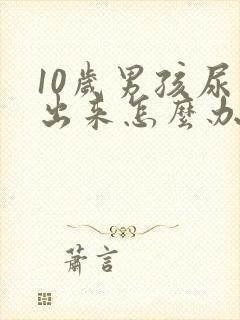 10歲男孩尿
出来怎麼办
蕭言